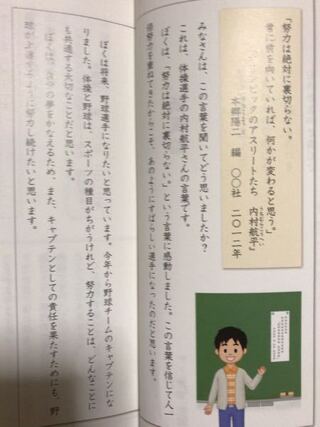 「努力は絶対に裏切らない。
常に前を向いていれば、何かが変わると思う。」
内村航平
ピックのアスリートたち
本郷陽二 編 〇〇社 二〇一二年
みなさんは、この言葉を聞いてどう思いましたか?
これは、体操選手の内村航平さんの言葉です。
ぼくは、「努力は絶対に裏切らない。」という言葉に感動しました。この言葉を信じて人一
倍努力を重ねてきたからこそ、あのようにすばらしい選手になったのだと思います。
ぼくは将来、野球選手になりたいと思っています。今年から野球チームのキャプテンにな
りました。体操と野球は、スポーツの種目がちがうけれど、努力することは、どんなことに
も共通する大切なことだと思います。
ぼくは、自分の夢をかなえるため、また、キャプテンとしての責任を果たすためにも、野
球が上達するように努力し続けたいと思います。